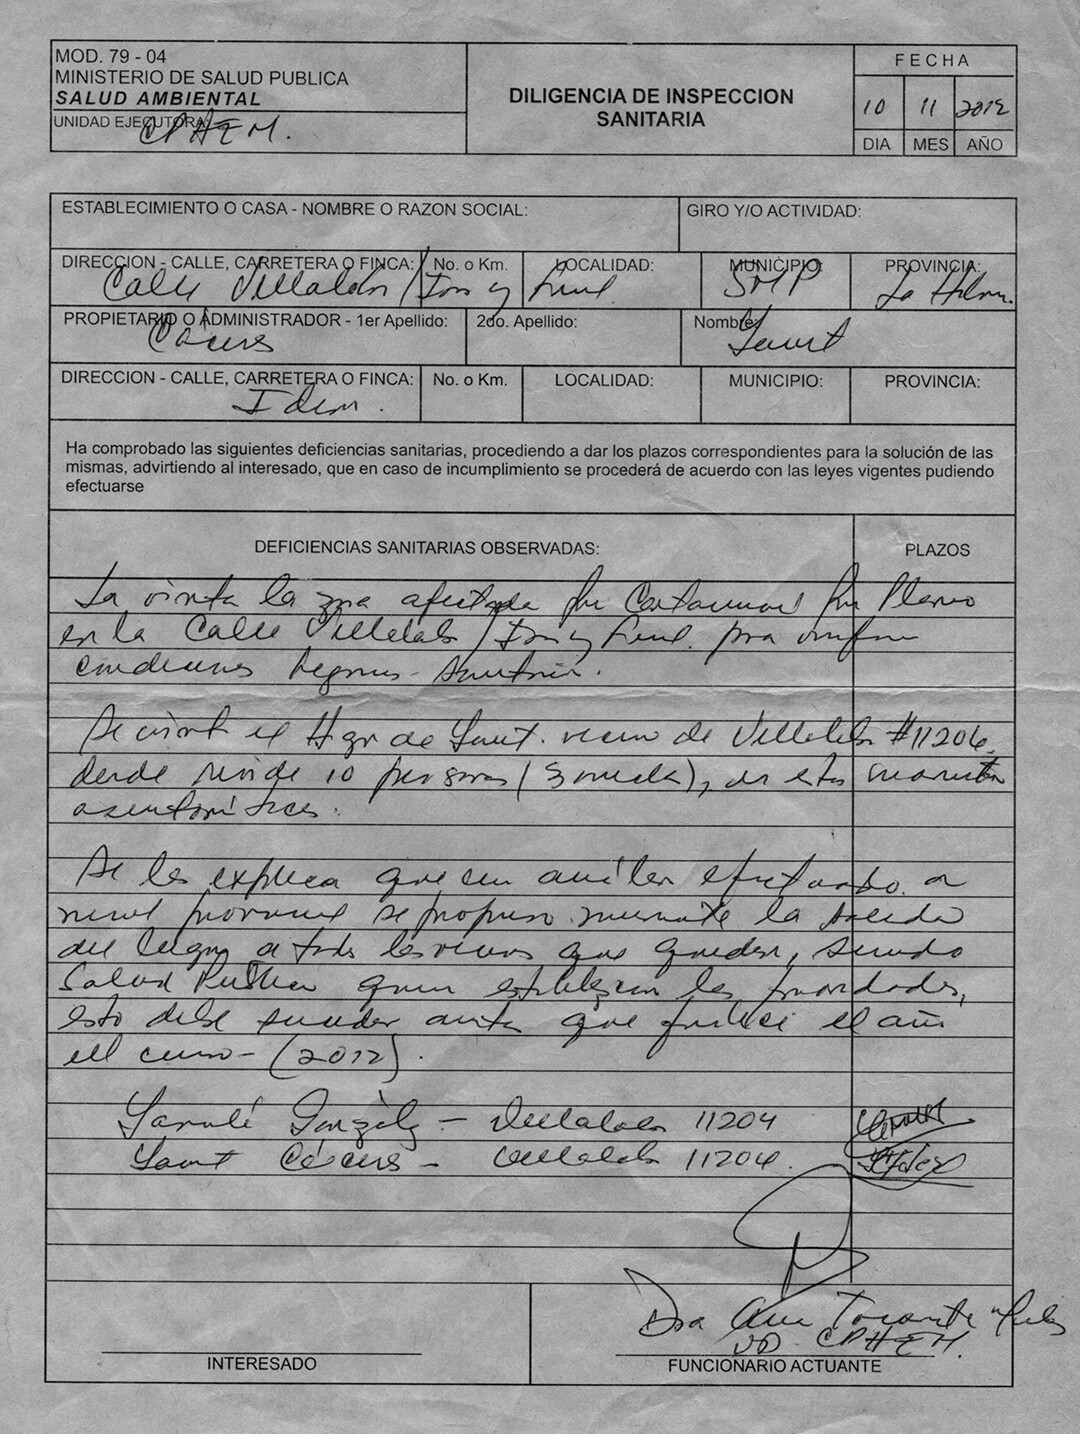 MOD. 79 - 04
MINISTERIO DE SALUD PUBLICA
SALUD AMBIENTAL
UNIDAD EJECUTORA:
CPHEM.
DILIGENCIA DE INSPECCION
SANITARIA
FECHA
10 11 2012
DIA MES AÑO
ESTABLECIMIENTO O CASA - NOMBRE O RAZON SOCIAL: GIRO Y/O ACTIVIDAD:
DIRECCION - CALLE, CARRETERA O FINCA: No. o Km. LOCALIDAD: MUNICIPIO: PROVINCIA:
Calle Villalobo / y SMP La Habana.
PROPIETARIO O ADMINISTRADOR - 1er Apellido: 2do. Apellido: Nombre:
Cáceres
DIRECCION - CALLE, CARRETERA O FINCA: No. o Km. LOCALIDAD: MUNICIPIO: PROVINCIA:
Idem.
Ha comprobado las siguientes deficiencias sanitarias, procediendo a dar los plazos correspondientes para la solución de las
mismas, advirtiendo al interesado, que en caso de incumplimiento se procederá de acuerdo con las leyes vigentes pudiendo
efectuarse
DEFICIENCIAS SANITARIAS OBSERVADAS: PLAZOS
la zona afectada por por Plomo
en la Calle Villalobo / y para
condiciones Higienico-Sanitarias.
Se visita el Hogar de vecino de Villalobo #11204,
donde reside 10 personas (3 ), en estos momentos
asintomáticos.
Se les explica que en efectuado a
nivel provincial se propuso la salida
del lugar a todos los vecinos que quedan, siendo
Salud Publica quien establezcan las prioridades,
esto debe suceder antes que finalice el año
en curso - (2012).
González - Villalobo 11204
Cáceres - Villalobo 11204.
Dra Ana
VD CPHEM.
INTERESADO FUNCIONARIO ACTUANTE